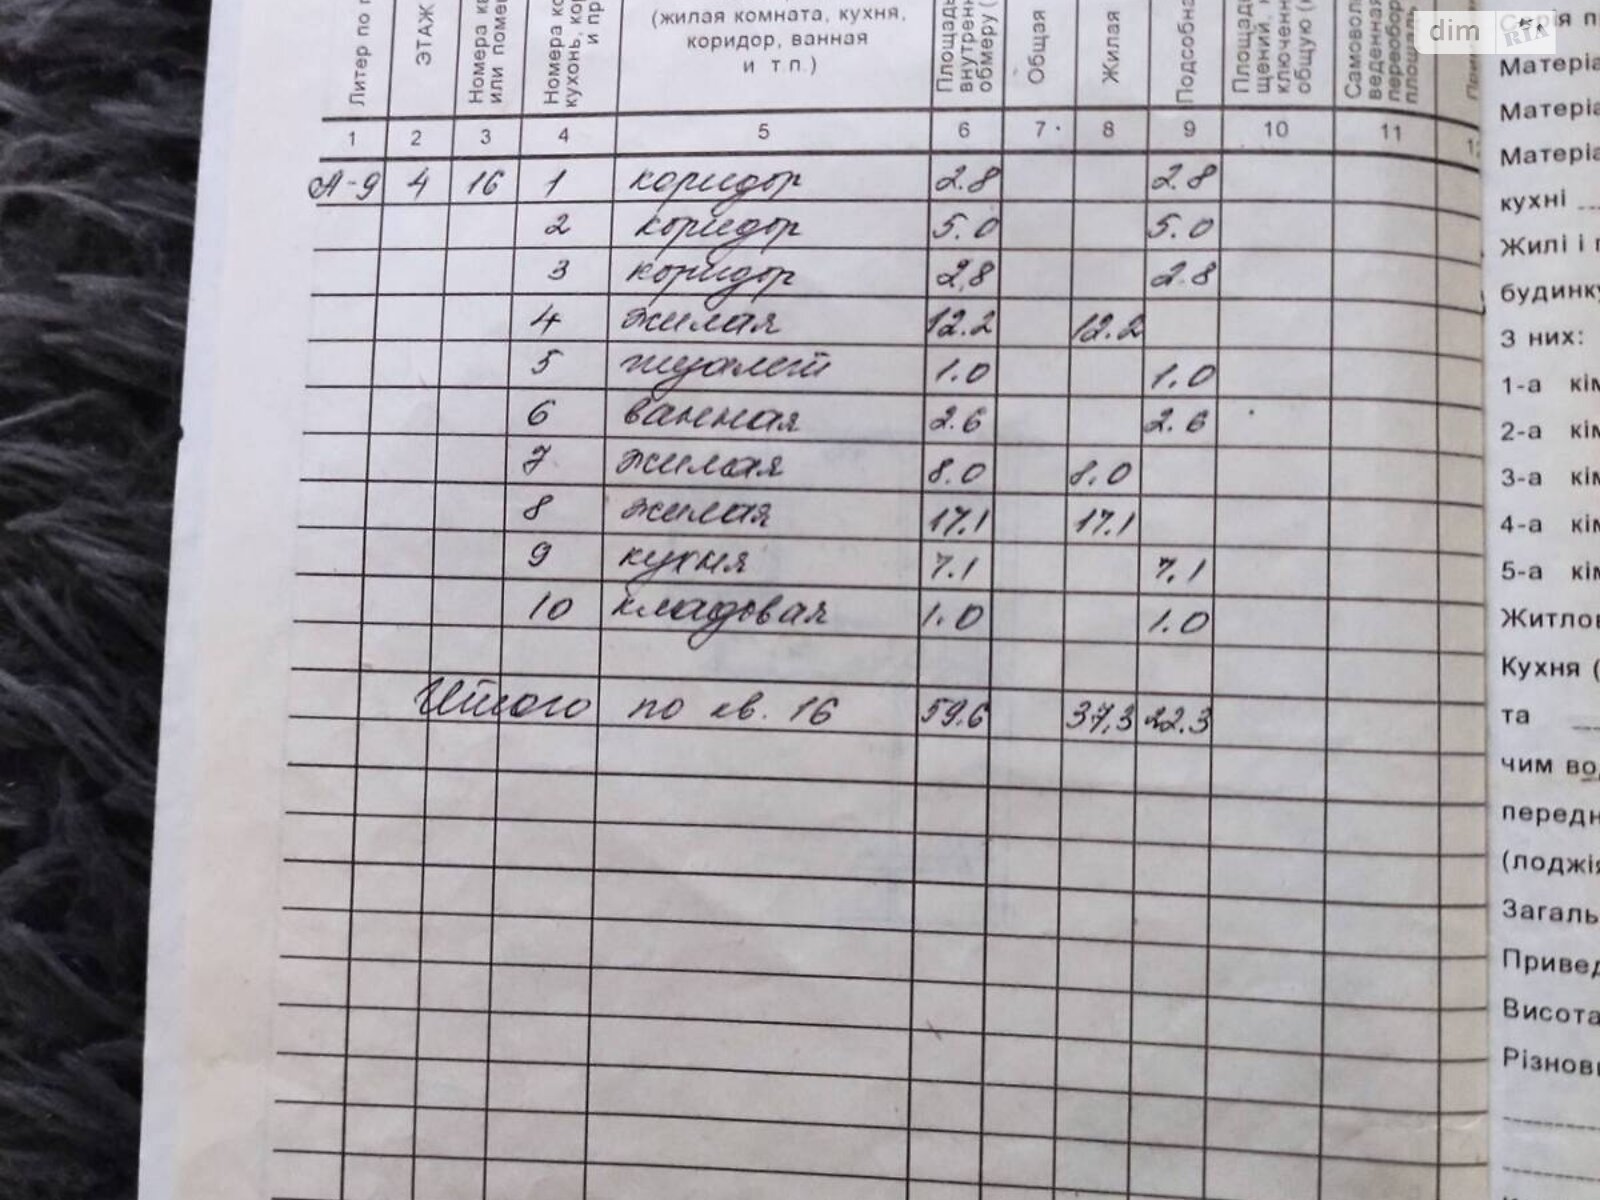 dim RIA
Литер по
ЭТАЖ
Номера кв
или поме
Номера ко
кухонь, кор
и пр
(жилая комната, кухня,
коридор, ванная
и т.п.)
Площадь
внутренн
обмеру (
Общая
Жилая
Подсобна
Площадь
щений,
ключенн
общую (
Самоволь
веденная
переобор
площадь
1 2 3 4 5 6 7 8 9 10 11
А-9 4 16 1 коридор 2.8 2.8
2 коридор 5.0 5.0
3 коридор 2,8 2.8
4 жилая 12.2 12.2
5 туалет 1.0 1.0
6 ванная 2.6 2.6
7 жилая 8.0 8.0
8 жилая 17.1 17.1
9 кухня 7.1 7.1
10 кладовая 1.0 1.0
Итого по кв. 16 59.6 37,3 22.3
Серія п
Матеріа
Матеріа
Матеріа
кухні
Жилі і п
будинку
З них:
1-а кім
2-а кім
3-а кім
4-а кім
5-а кім
Житлов
Кухня (
та
чим вод
передн
(лоджія
Загаль
Привед
Висота
Різнови